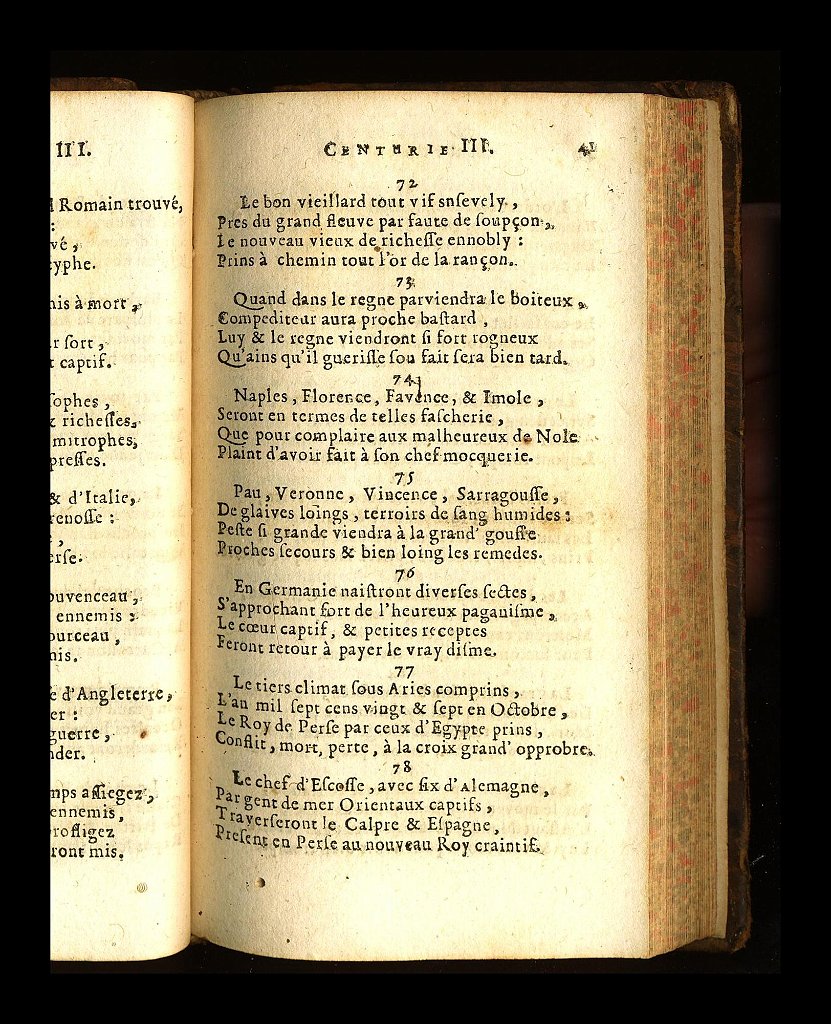 III.
Romain trouvé,
:
vé,
yphe.
is à mort,
r sort,
captif.
ophes,
richesses,
mitrophes,
presses.
& d'Italie,
renosse :
,
erse.
ouvenceau,
ennemis :
ourceau,
nis.
d'Angleterre,
er :
guerre,
nder.
mps assiegez,
ennemis,
rofligez
ront mis.
CENTURIE III. 41
72
Le bon vieillard tout vif snſevely,
Pres du grand fleuve par faute de ſoupçon,
Le nouveau vieux de richeſſe ennobly :
Prins à chemin tout l'or de la rançon.
73
Quand dans le regne parviendra le boiteux,
Compediteur aura proche baſtard,
Luy & le regne viendront ſi fort rogneux
Qu'ains qu'il gueriſſe ſon fait ſera bien tard.
74
Naples, Florence, Favence, & Imole,
Seront en termes de telles faſcherie,
Que pour complaire aux malheureux de Nole
Plaint d'avoir fait à ſon chef mocquerie.
75
Pau, Veronne, Vincence, Sarragouſſe,
De glaives loings, terroirs de ſang humides :
Peſte ſi grande viendra à la grand' gouſſe
Proches ſecours & bien loing les remedes.
76
En Germanie naiſtront diverſes ſectes,
S'approchant fort de l'heureux paganiſme,
Le cœur captif, & petites receptes
Feront retour à payer le vray diſme.
77
Le tiers climat ſous Aries comprins,
L'an mil ſept cens vingt & ſept en Octobre,
Le Roy de Perſe par ceux d'Egypte prins,
Conflit, mort, perte, à la croix grand' opprobre.
78
Le chef d'Eſcoſſe, avec ſix d'Alemagne,
Par gent de mer Orientaux captifs,
Traverſeront le Calpre & Eſpagne,
Preſent en Perſe au nouveau Roy craintif.